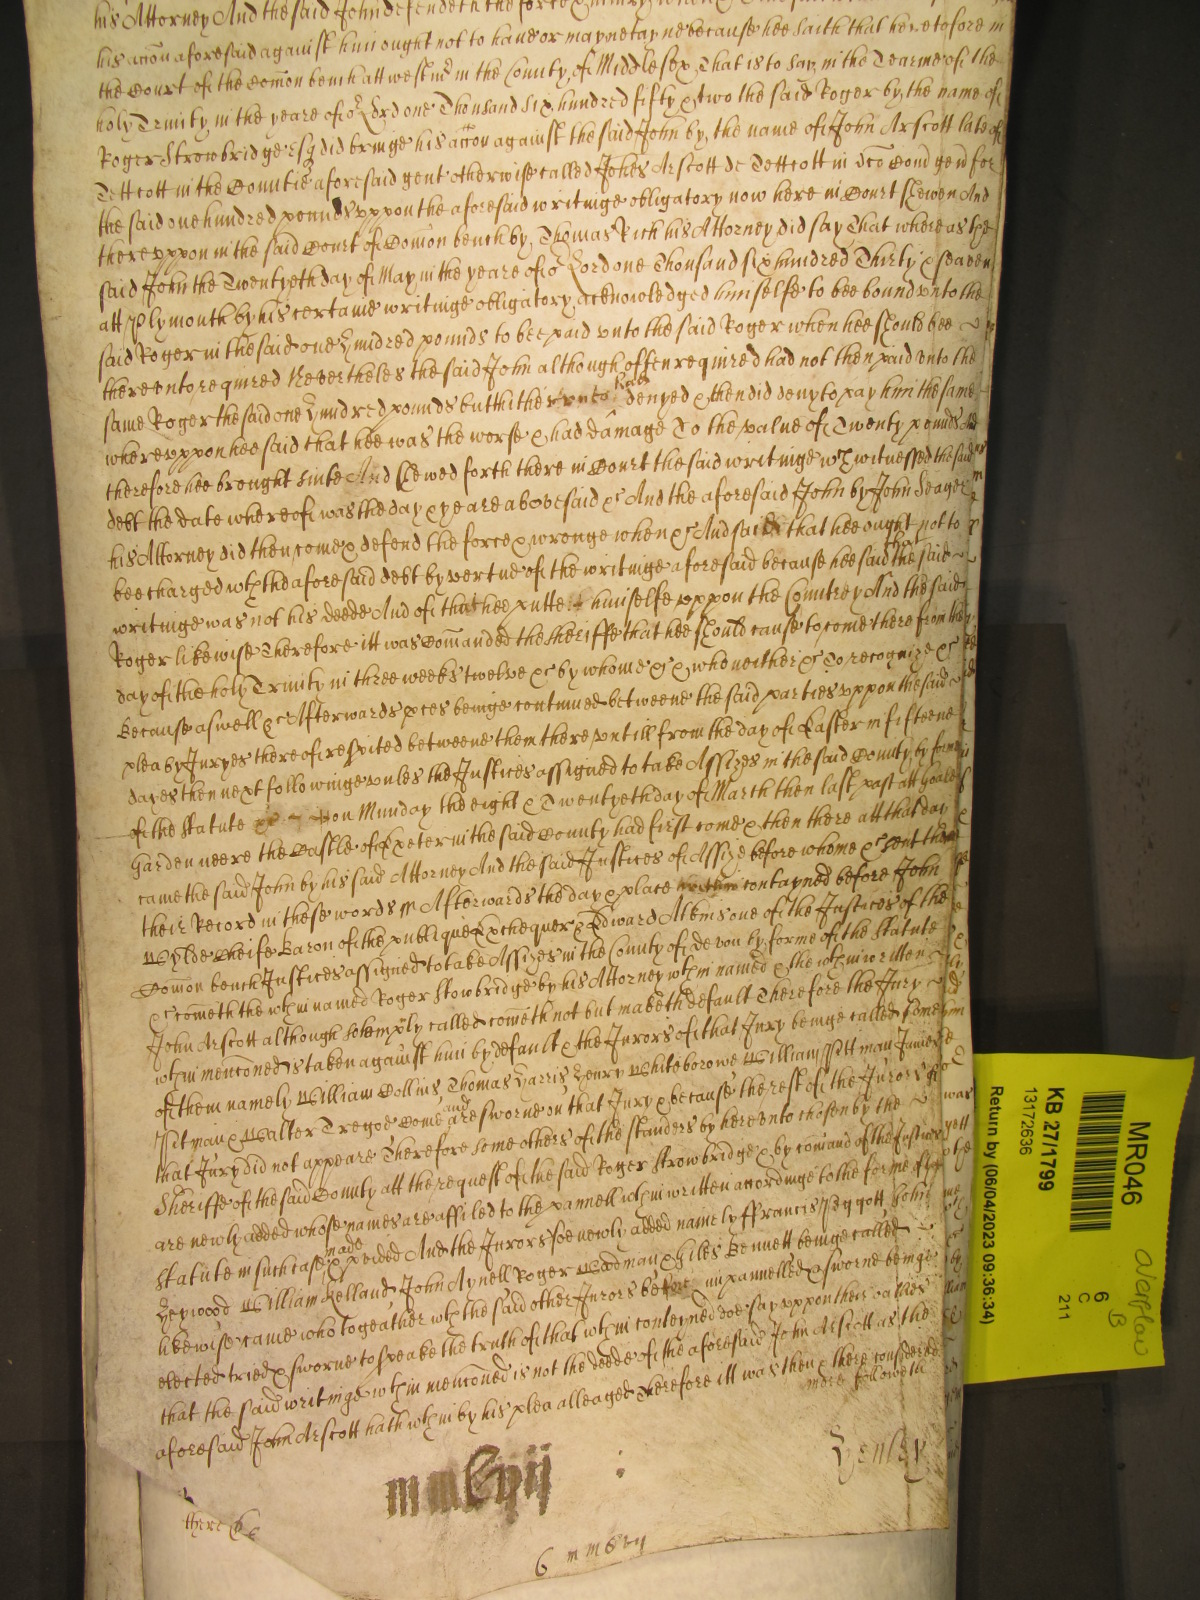 his Attorney And the said John defendeth the force & Iniury when &c And saith that
his accon aforesaid against him ought not to haue or mayntayne because hee saith that heretofore in
the Court of the Comon bench att westmr in the County of Middlesex That is to say in the Tearme of the
holy Trinity in the yeare of or Lord one Thousand six hundred fifty & two the said Roger by the name of
Roger Strowbridge Esq did bringe his accon against the said John by the name of John Arscott late of
Tettcott in the Countie aforesaid gent otherwise called Johes Arscott de Tettcott in Com Gen for
the said one hundred pounds vppon the aforesaid writinge obligatory now here in Court shewen And
therevppon in the said Court of Comon bench by Thomas Rich his Attorney did say That whereas the
said John the Twentyeth day of May in the yeare of or Lord one Thousand six hundred Thirty & seaven
att Plymouth by his certaine writinge obligatory acknowledged himselfe to bee bound vnto the
said Roger in the said one hundred pounds to bee paid vnto the said Roger when hee should bee
therevnto required Neverthelesse the said John although often required had not then paid vnto the
same Roger the said one hundred pounds but hitherto had denyed & then did deny to pay him the same
wherevppon hee said that hee was the worse & had damage To the value of Twenty pounds And
therefore hee brought suite And shewed forth there in Court the said writinge wch witnessed the said
debt the date whereof was the day & yeare abovesaid &c And the aforesaid John by John Seager
his Attorney did then come & defend the force & wronge when &c And said that hee ought not to
bee charged wth the aforesaid debt by vertue of the writinge aforesaid because hee said that the said
writinge was not his deede And of that hee putteth himselfe vppon the Countrey And the said
Roger likewise Therefore itt was Comanded the Sheriffe that hee should cause to come there from the
day of the holy Trinity in three weeks twelve &c by whome &c & who neither &c To recognize &c
Because aswell &c Afterwards pces beinge continued betweene the said parties vppon the said
plea by Juryes thereof respited betweene them there vntill from the day of Easter in fifteene
dayes then next followinge vnles the Justices assigned to take Assizes in the said County by forme
of the Statute &c on Munday the eight & Twentyeth day of March then last past att Goale
Garden neere the Castle of Exeter in the said County had first come & then there att that day
came the said John by his said Attorney And the said Justices of Assize before whome &c sent there
their Record in these words Afterwards the day & place within contayned before John
Wylde Cheife Baron of the publique Exchequer & Edward Atkins one of the Justices of the
Comon bench Justices assigned to take Assizes in the County of devon by forme of the Statute
&c cometh the wthin named Roger Stowbridge by his Attorney wthin named & the wthin written
John Arscott although solemply called cometh not but maketh default Therefore the Jury
wthin menconed is taken against him by default & the Jurors of that Jury beinge called some
of them namely William Collins Thomas Harris Henry Whiteborowe William Pittman Junior
Pitman & Walter Tregoe Come and are sworne on that Jury & because the rest of the Jurors of
that Jury did not appeare Therefore some others of the standers by herevnto chosen by the
Sheriffe of the said County att the request of the said Roger Strowbridge & by comand of the Justices
are newly added whose names are affiled to the pannell wthin written accordinge to the forme of the
Statute in such case made & pvided And the Jurors soe newly added namely ffrancis Piggott John
Heywood William Kelland John Aynell Roger Woodman & Giles Bennett beinge called
likewise came who togeather wth the said other Jurors before impannelled & sworne beinge
elected tried & sworne to speake the truth of that wthin conteyned doe say vppon their oathes
that the said writinge wthin menconed is not the deede of the aforesaid John Arscott as the
aforesaid John Arscott hath wthin by his plea alleaged Therefore itt was then & there considered
more followeth
Henley
mmCxvij
there be
6 mmCxvij
MR046
KB 27/1799
13172636
Return by (06/04/2023 09:36:34)
6
C
211
B